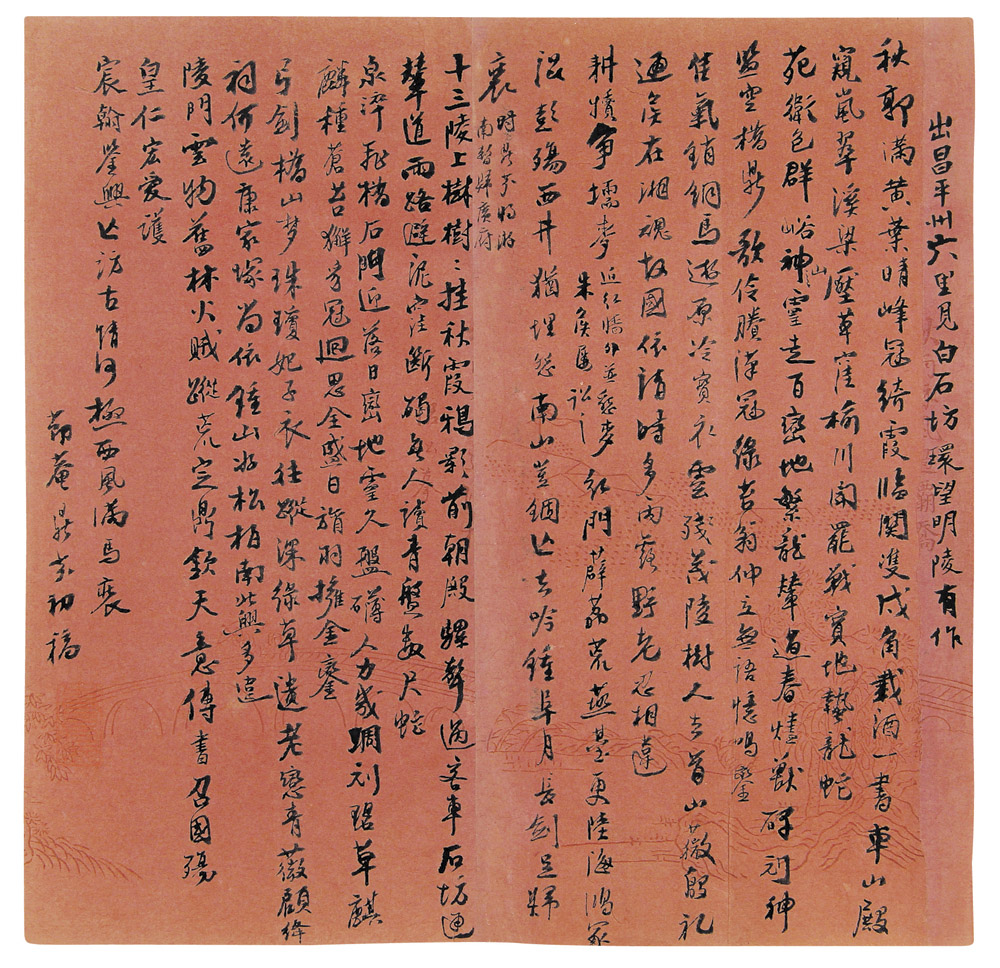 出昌平州六里見白石坊環望明陵有作
秋郭滿黃葉晴峰冠綺霞臨關雙戍角載酒一書車山殿
窺嵐翠溪梁壓草窪榆川閑罷戰寶地蟄龍蛇
苑衛色群峪神山靈走百巒地繁龍輦道春爐獸碑刓神
監空橋鼎歌伶賸漢冠綠苔翁仲立無語憶鳴鑾
佳氣銷銅馬遊原冷寶衣雲殘茂陵樹人去首山薇館祀
通侯在湘魂故國依清時多雨露野老忍相違
耕犢爭壖麥近紅牆外並藝麥朱侯屢訟之 紅門薜荔荒燕臺更陸海鴻冢
混彭殤西井猶埋怨南山豈錮亡去吟鍾阜月長劍足歸
裝時是鼎將游南暫歸廣府
十三陵上樹樹樹掛秋霞鴉影前朝殿騾聲過客車石坊連
輦道雨路避泥窪斷碣無人讀青盤數尺蛇
泉渟飛橋石門近落日巒地靈久盤礴人力歲雕刓碧草麒
麟種蒼苔獬豸冠迴思全盛日旂羽擁金鑾
弓劍橋山夢珠瓊妃子衣往蹤深綠草遺老戀青薇顧絳
祠何遠康家塚尚依鍾山好松柏南北興多違
陵門雲物舊林火賊蹤荒定鼎欽天意傳書召國殤
皇仁宏愛護
宸翰鑒興亡訪古情何極西風滿馬裝
節菴鼎芬初稿